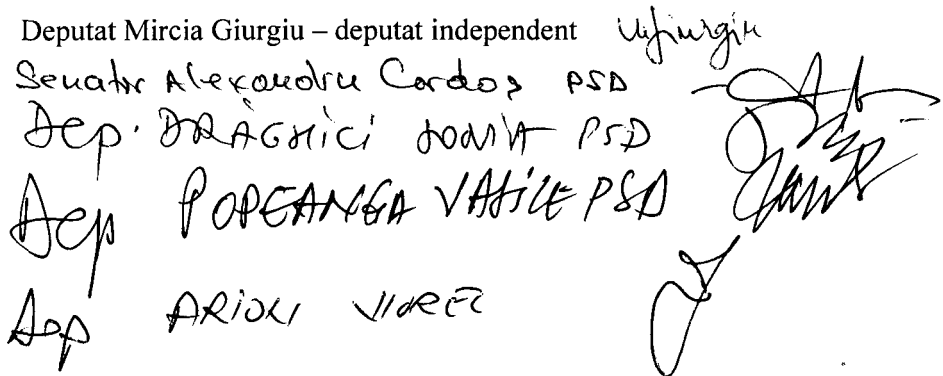 Deputat Mircia Giurgiu – deputat independent
Senator Alexandru Cordoș PSD
Dep. DRĂGHICI SONIA PSD
Dep POPEANGĂ VASILE PSD
Dep ARION VIOREL